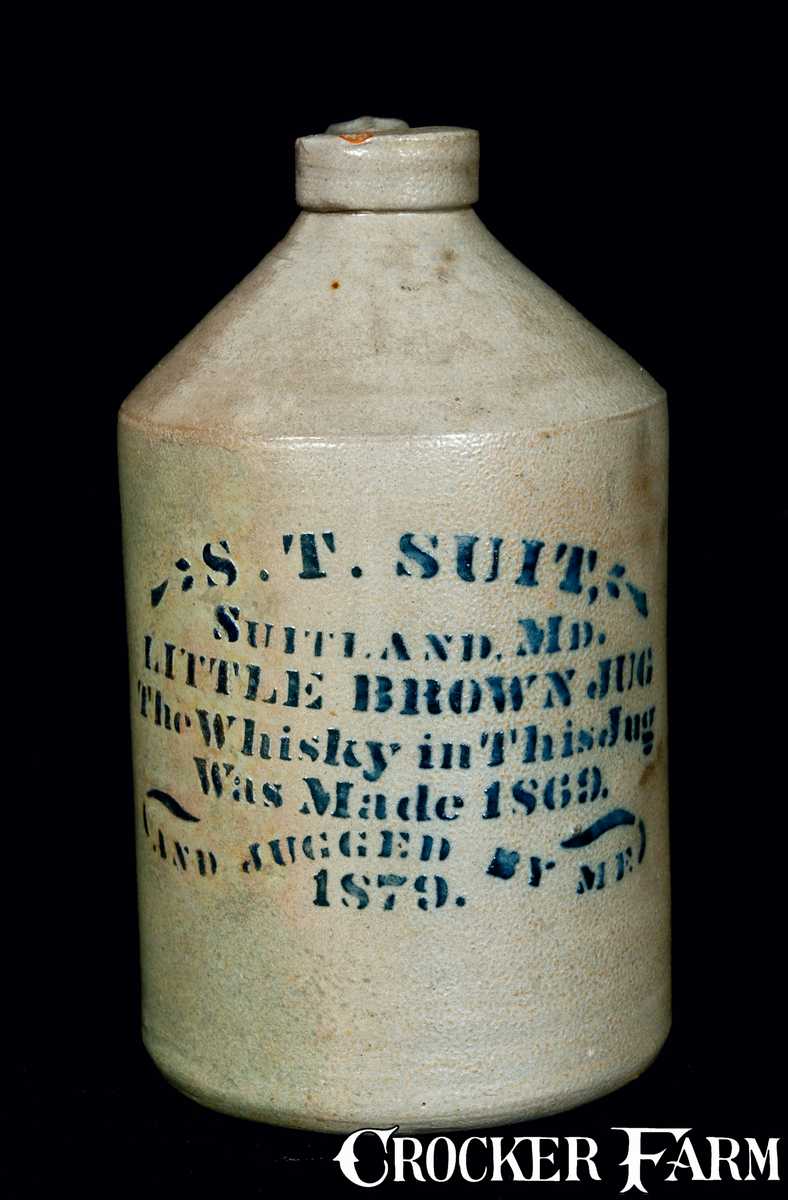 S. T. SUIT,
SUITLAND, MD.
LITTLE BROWN JUG
The Whisky in This Jug
Was Made 1869.
AND JUGGED BY ME
1879.
CROCKER FARM